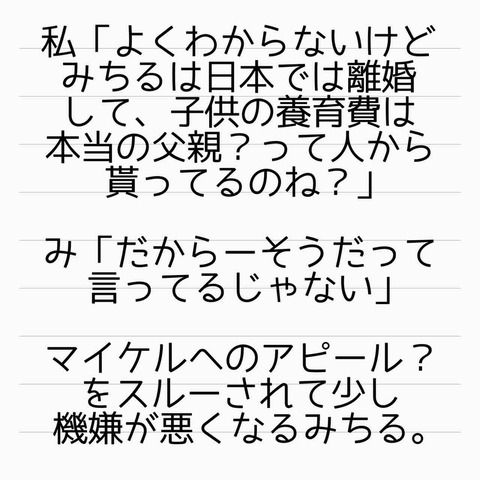 私「よくわからないけど
みちるは日本では離婚
して、子供の養育費は
本当の父親？って人から
貰ってるのね？」
み「だからーそうだって
言ってるじゃない」
マイケルへのアピール？
をスルーされて少し
機嫌が悪くなるみちる。